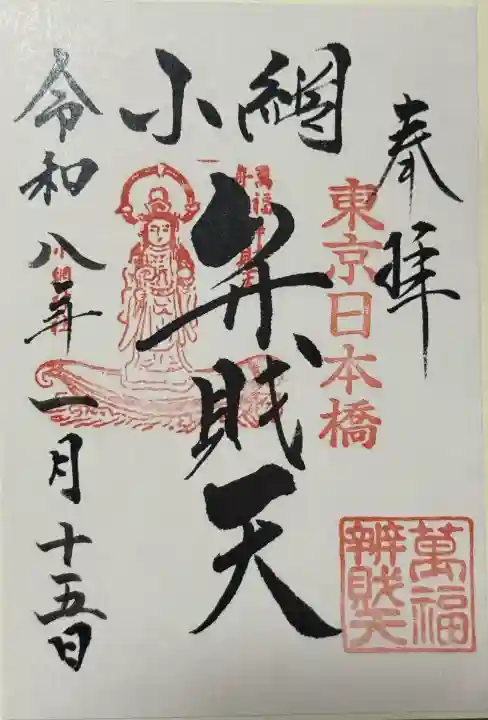 奉拝
東京日本橋
萬福
辨財天
小網
弁財天
令和八年一月十五日